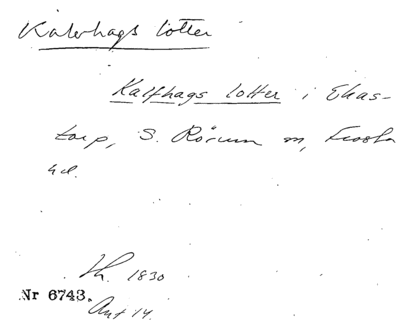 Kalerhags lotter
Kalfhags lotter i Ekas-
torp, S. Rörum sn, Frosta
hd.
Lh. 1830
Nr 6743.
Ant 14.